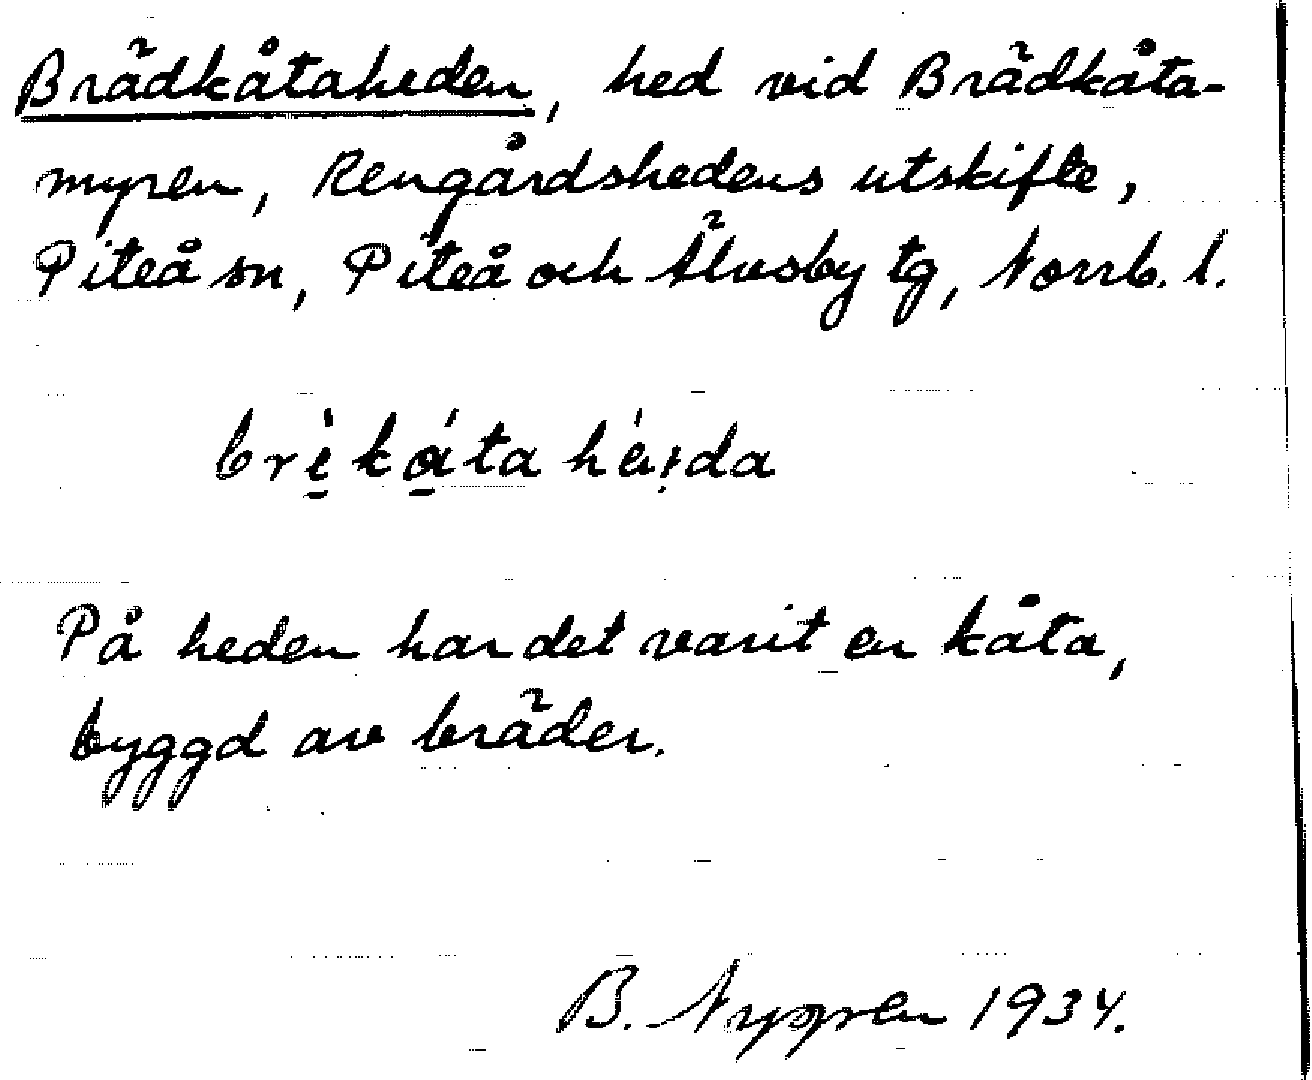 Brädkåtaheden, hed vid Brädkåta-
myren, Rengårdshedens utskifte,
Piteå sn, Piteå och Älvsby tg, Norrb. l.
brè̱ ká̱ta héi̩da
På heden har det varit en kåta,
byggd av bräder.
B. Nygren 1934.